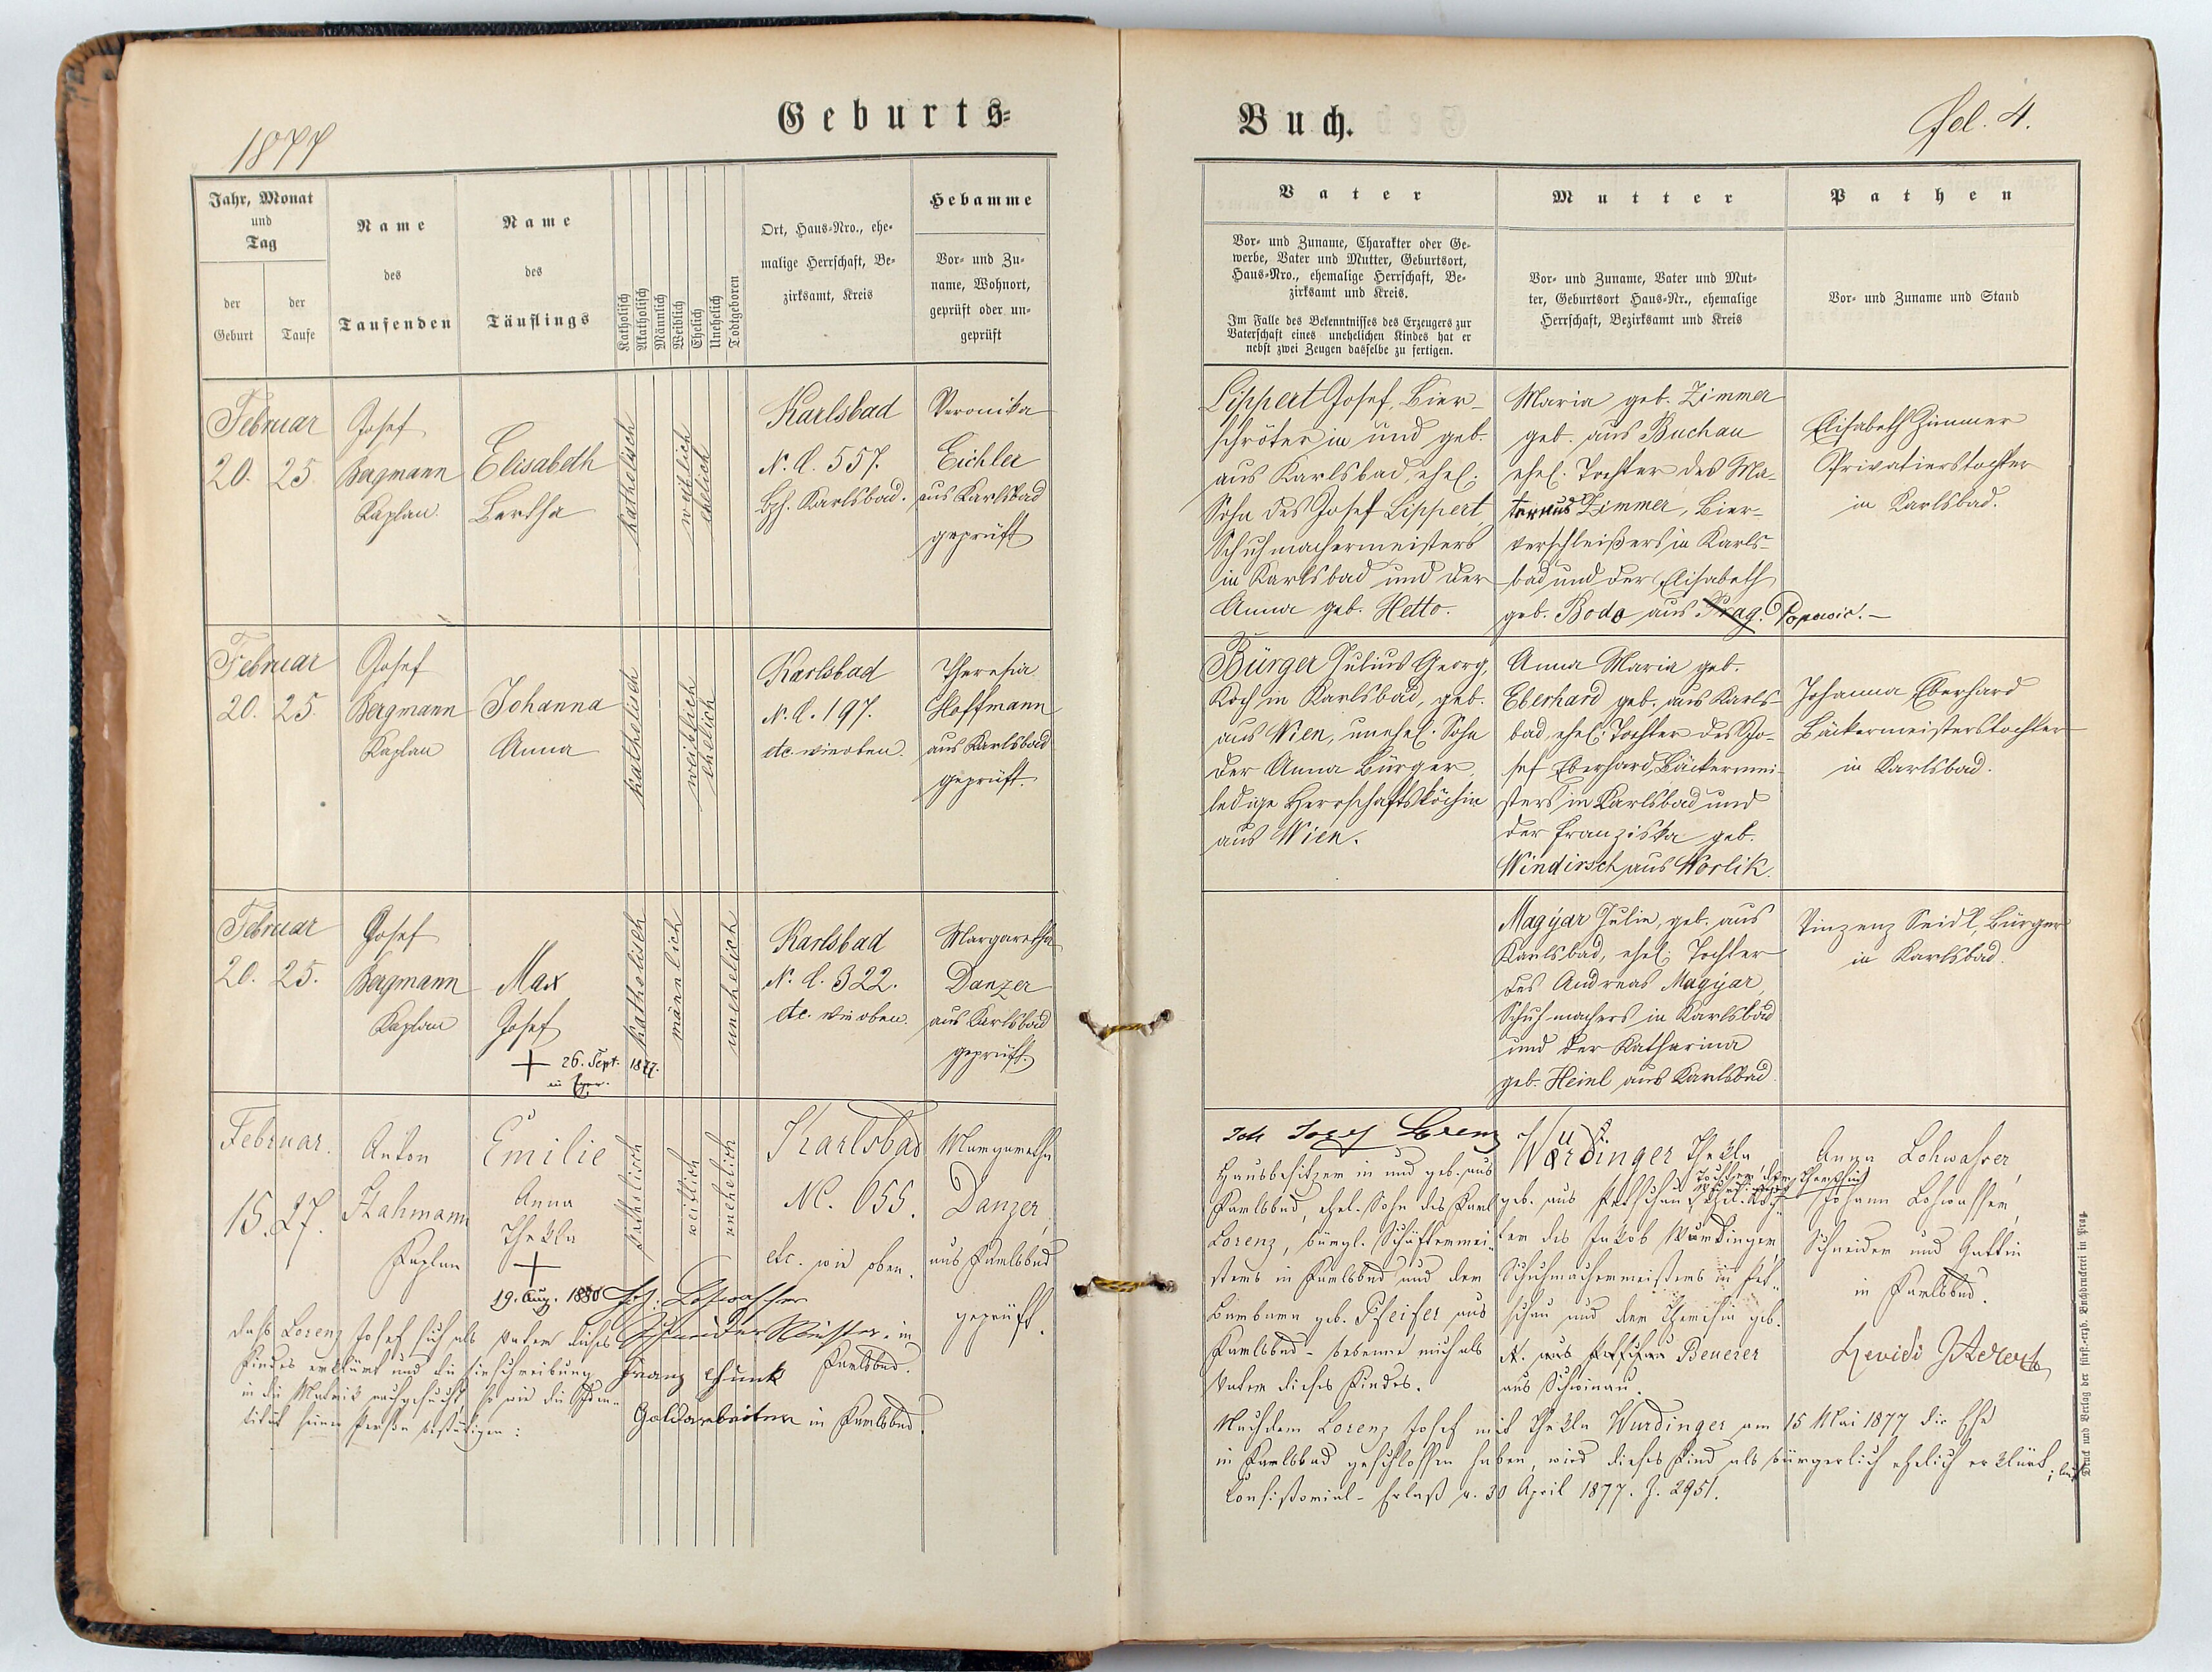 Geburts=
Buch.
1877
Fol. 4.
Jahr, Monat
und
Tag
der
Geburt
der
Taufe
Name
des
Taufenden
Name
des
Täuflings
Katholisch
Akatholisch
Männlich
Weiblich
Ehelich
Unehelich
Todtgeboren
Ort, Haus-Nro., ehe-
malige Herrschaft, Be-
zirksamt, Kreis
Hebamme
Vor- und Zu-
name, Wohnort,
geprüft oder un-
geprüft
Vater
Vor- und Zuname, Charakter oder Ge-
werbe, Vater und Mutter, Geburtsort,
Haus-Nro., ehemalige Herrschaft, Be-
zirksamt und Kreis.
Im Falle des Bekenntnisses des Erzeugers zur
Vaterschaft eines unehelichen Kindes hat er
nebst zwei Zeugen dasselbe zu fertigen.
Mutter
Vor- und Zuname, Vater und Mut-
ter, Geburtsort Haus-Nr., ehemalige
Herrschaft, Bezirksamt und Kreis
Pathen
Vor- und Zuname und Stand
Februar
20. 25.
Josef
Bergmann
Kaplan.
Elisabeth
Bertha
katholisch
weiblich
ehelich
Karlsbad
N. C. 557.
Bzh. Karlsbad.
Veronika
Eichler
aus Karlsbad
geprüft
Lippert Josef, Bier-
schröter in und geb.
aus Karlsbad, ehel.
Sohn des Josef Lippert,
Schuhmachermeisters
in Karlsbad und der
Anna geb. Hetto.
Maria geb. Zimmer
geb. aus Buchau
ehel. Tochter des Ma-
ternus Zimmer, Bier-
verschleißers in Karls-
bad und der Elisabeth
geb. Boda aus Prag. Popowic.
Elisabeth Zimmer
Privatierstochter
in Karlsbad.
Februar
20. 25.
Josef
Bergmann
Kaplan
Johanna
Anna
katholisch
weiblich
ehelich
Karlsbad
N. C. 197.
etc. wie oben.
Theresia
Hoffmann
aus Karlsbad
geprüft.
Bürger Julius Georg,
Koch in Karlsbad, geb.
aus Wien, unehel. Sohn
der Anna Bürger,
ledige Herrschaftsköchin
aus Wien.
Anna Maria geb.
Eberhard geb. aus Karls-
bad, ehel. Tochter des Jo-
sef Eberhard, Bäckermei-
sters in Karlsbad und
der Franziska geb.
Windirsch aus Worlik.
Johanna Eberhard
Bäckermeisterstochter
in Karlsbad.
Februar
20. 25.
Josef
Bergmann
Kaplan
Max
Josef
+ 26. Sept. 1877.
in Eger.
katholisch
männlich
unehelich
Karlsbad
N. C. 322.
etc. wie oben.
Margaretha
Danzer
aus Karlsbad
geprüft.
Magyar Julie, geb. aus
Karlsbad, ehel. Tochter
des Andreas Magyar,
Schuhmachers in Karlsbad
und der Katharina
geb. Heinl aus Karlsbad.
Vinzenz Seidl, Bürger
in Karlsbad.
Februar.
15. 27.
Anton
Hahmann
Kaplan
Emilie
Anna
Thekla
+
19. Aug. 1880
katholisch
weiblich
unehelich
Karlsbad
NC. 655.
etc. wie oben.
Margaretha
Danzer,
aus Karlsbad
geprüft.
Ich Josef Lorenz
Hausbesitzer in und geb. aus
Karlsbad, ehel. Sohn des Karl
Lorenz, bürgl. Schäftermei-
sters in Karlsbad und der
Barbara geb. Pfeifer aus
Karlsbad - bekenne mich als
Vater dieses Kindes.
Wurdinger Thekla
geb. aus Petschau
ter des Jakob Wurdinger,
Schuhmachermeisters in Pet-
schau und der Theresia geb.
Beuerer
aus Schönau.
Anna Lohwasser,
Johann Lohwasser,
Schneider und Gattin
in Karlsbad.
daß Lorenz Josef sich als Vater dieses
Kindes erklärt und die Einschreibung
in die Matrik nachgesucht, so wie die Iden-
tität seiner Person bestätigen:
Joh: Lohwasser
Schneider Meister in
Karlsbad.
Franz Funk
Goldarbeiter in Karlsbad.
Nachdem Lorenz Josef mit Thekla Wurdinger am 15 Mai 1877 die Ehe
in Karlsbad geschlossen haben, wird dieses Kind als bürgerlich ehelich erklärt; laut
Consistorial-Erlaß v. 30 April 1877. Z. 2951.
Druck und Verlag der fürst.-erzb. Buchdruckerei in Prag.